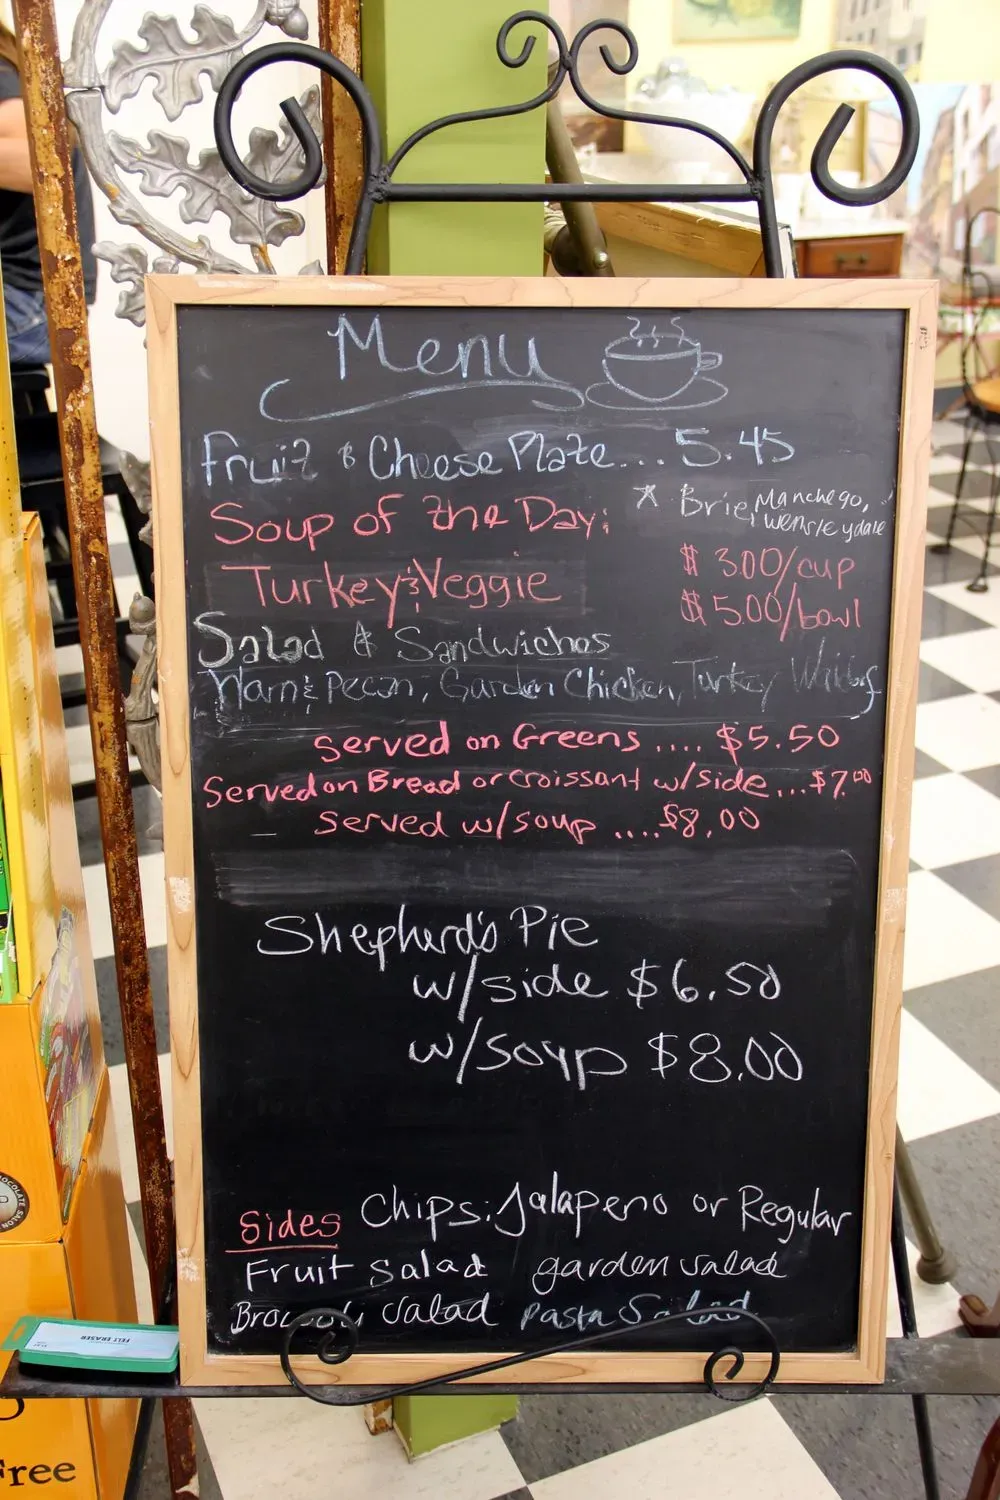 Menu
Fruit & Cheese Plate... 5.45
* Brie, Manchego,
Wensleydale
Soup of the Day:
Turkey & Veggie
$ 3.00/cup
$ 5.00/bowl
Salad & Sandwiches
Pecan, Garden Chicken, Turkey
served on Greens .... $5.50
Served on Bread or Croissant w/side ... $7.00
served w/soup .... $8.00
Shepherd's Pie
w/side $6.50
w/soup $8.00
Sides Chips: Jalapeno or Regular
Fruit Salad garden salad
Broccoli Salad Pasta Salad
FELT ERASER
CHOCOLATE SALON
Free